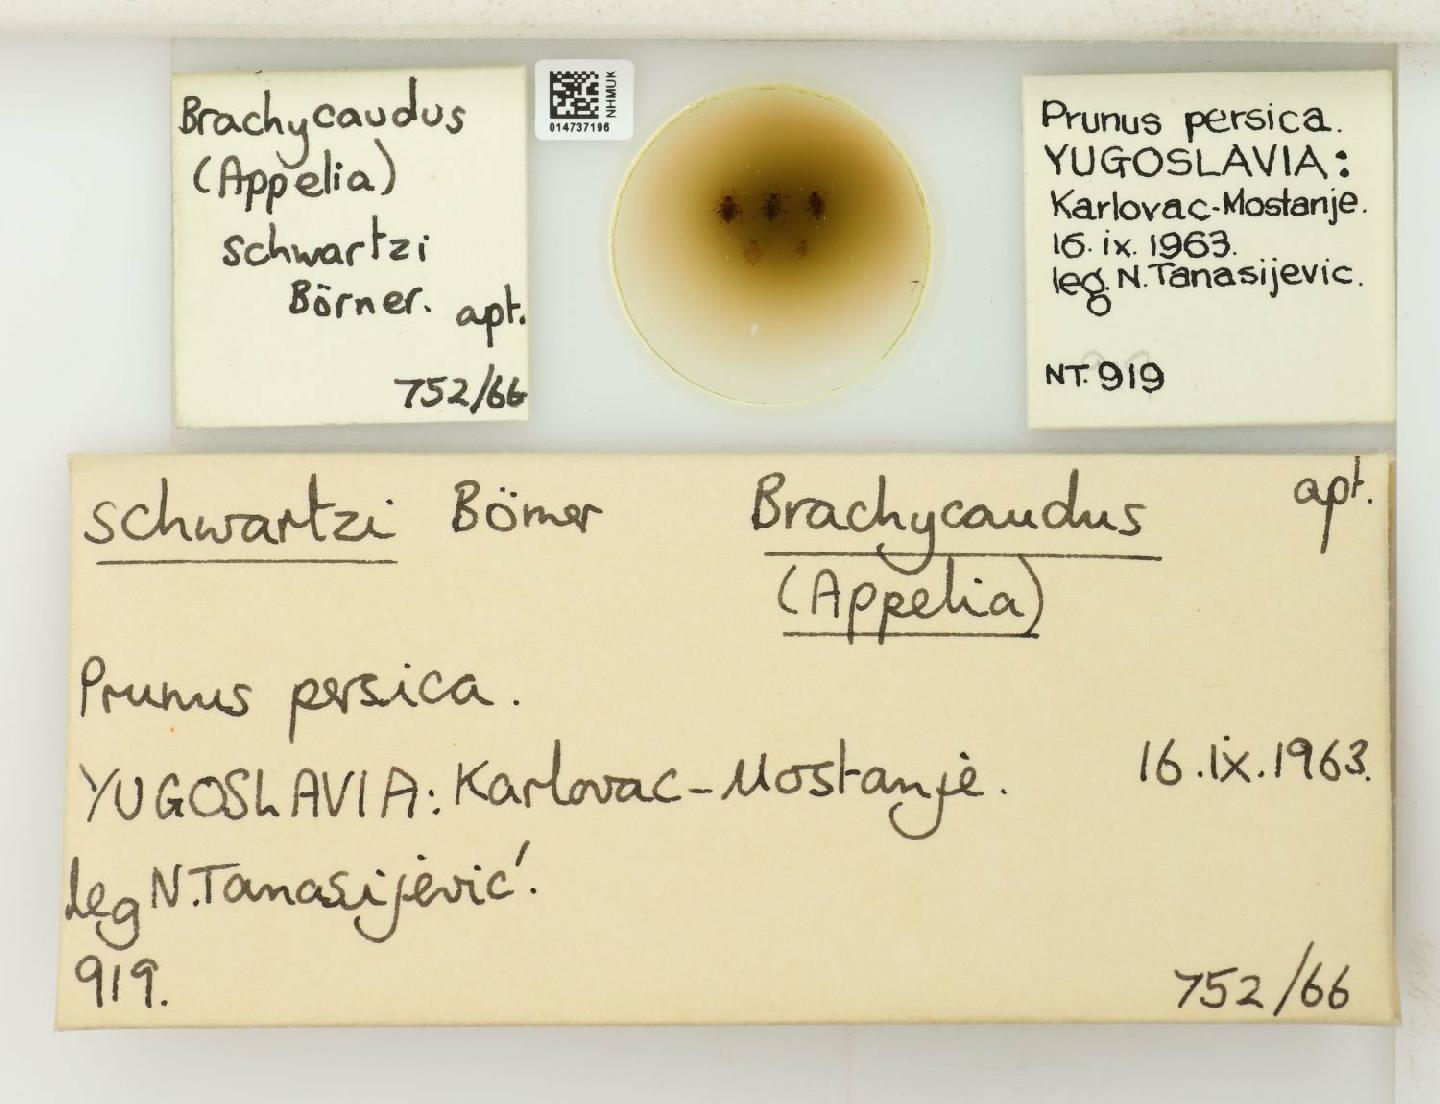 Brachycaudus
(Appelia)
schwartzi
Börner. apt.
752/66
NHMUK
014737196
Prunus persica.
YUGOSLAVIA:
Karlovac-Mostanje.
16. ix. 1963.
leg. N. Tanasijevic.
NT. 919
schwartzi Börner Brachycaudus apt.
(Appelia)
Prunus persica.
YUGOSLAVIA: Karlovac-Mostanje. 16.ix.1963.
Leg N.Tanasijević.
919. 752/66